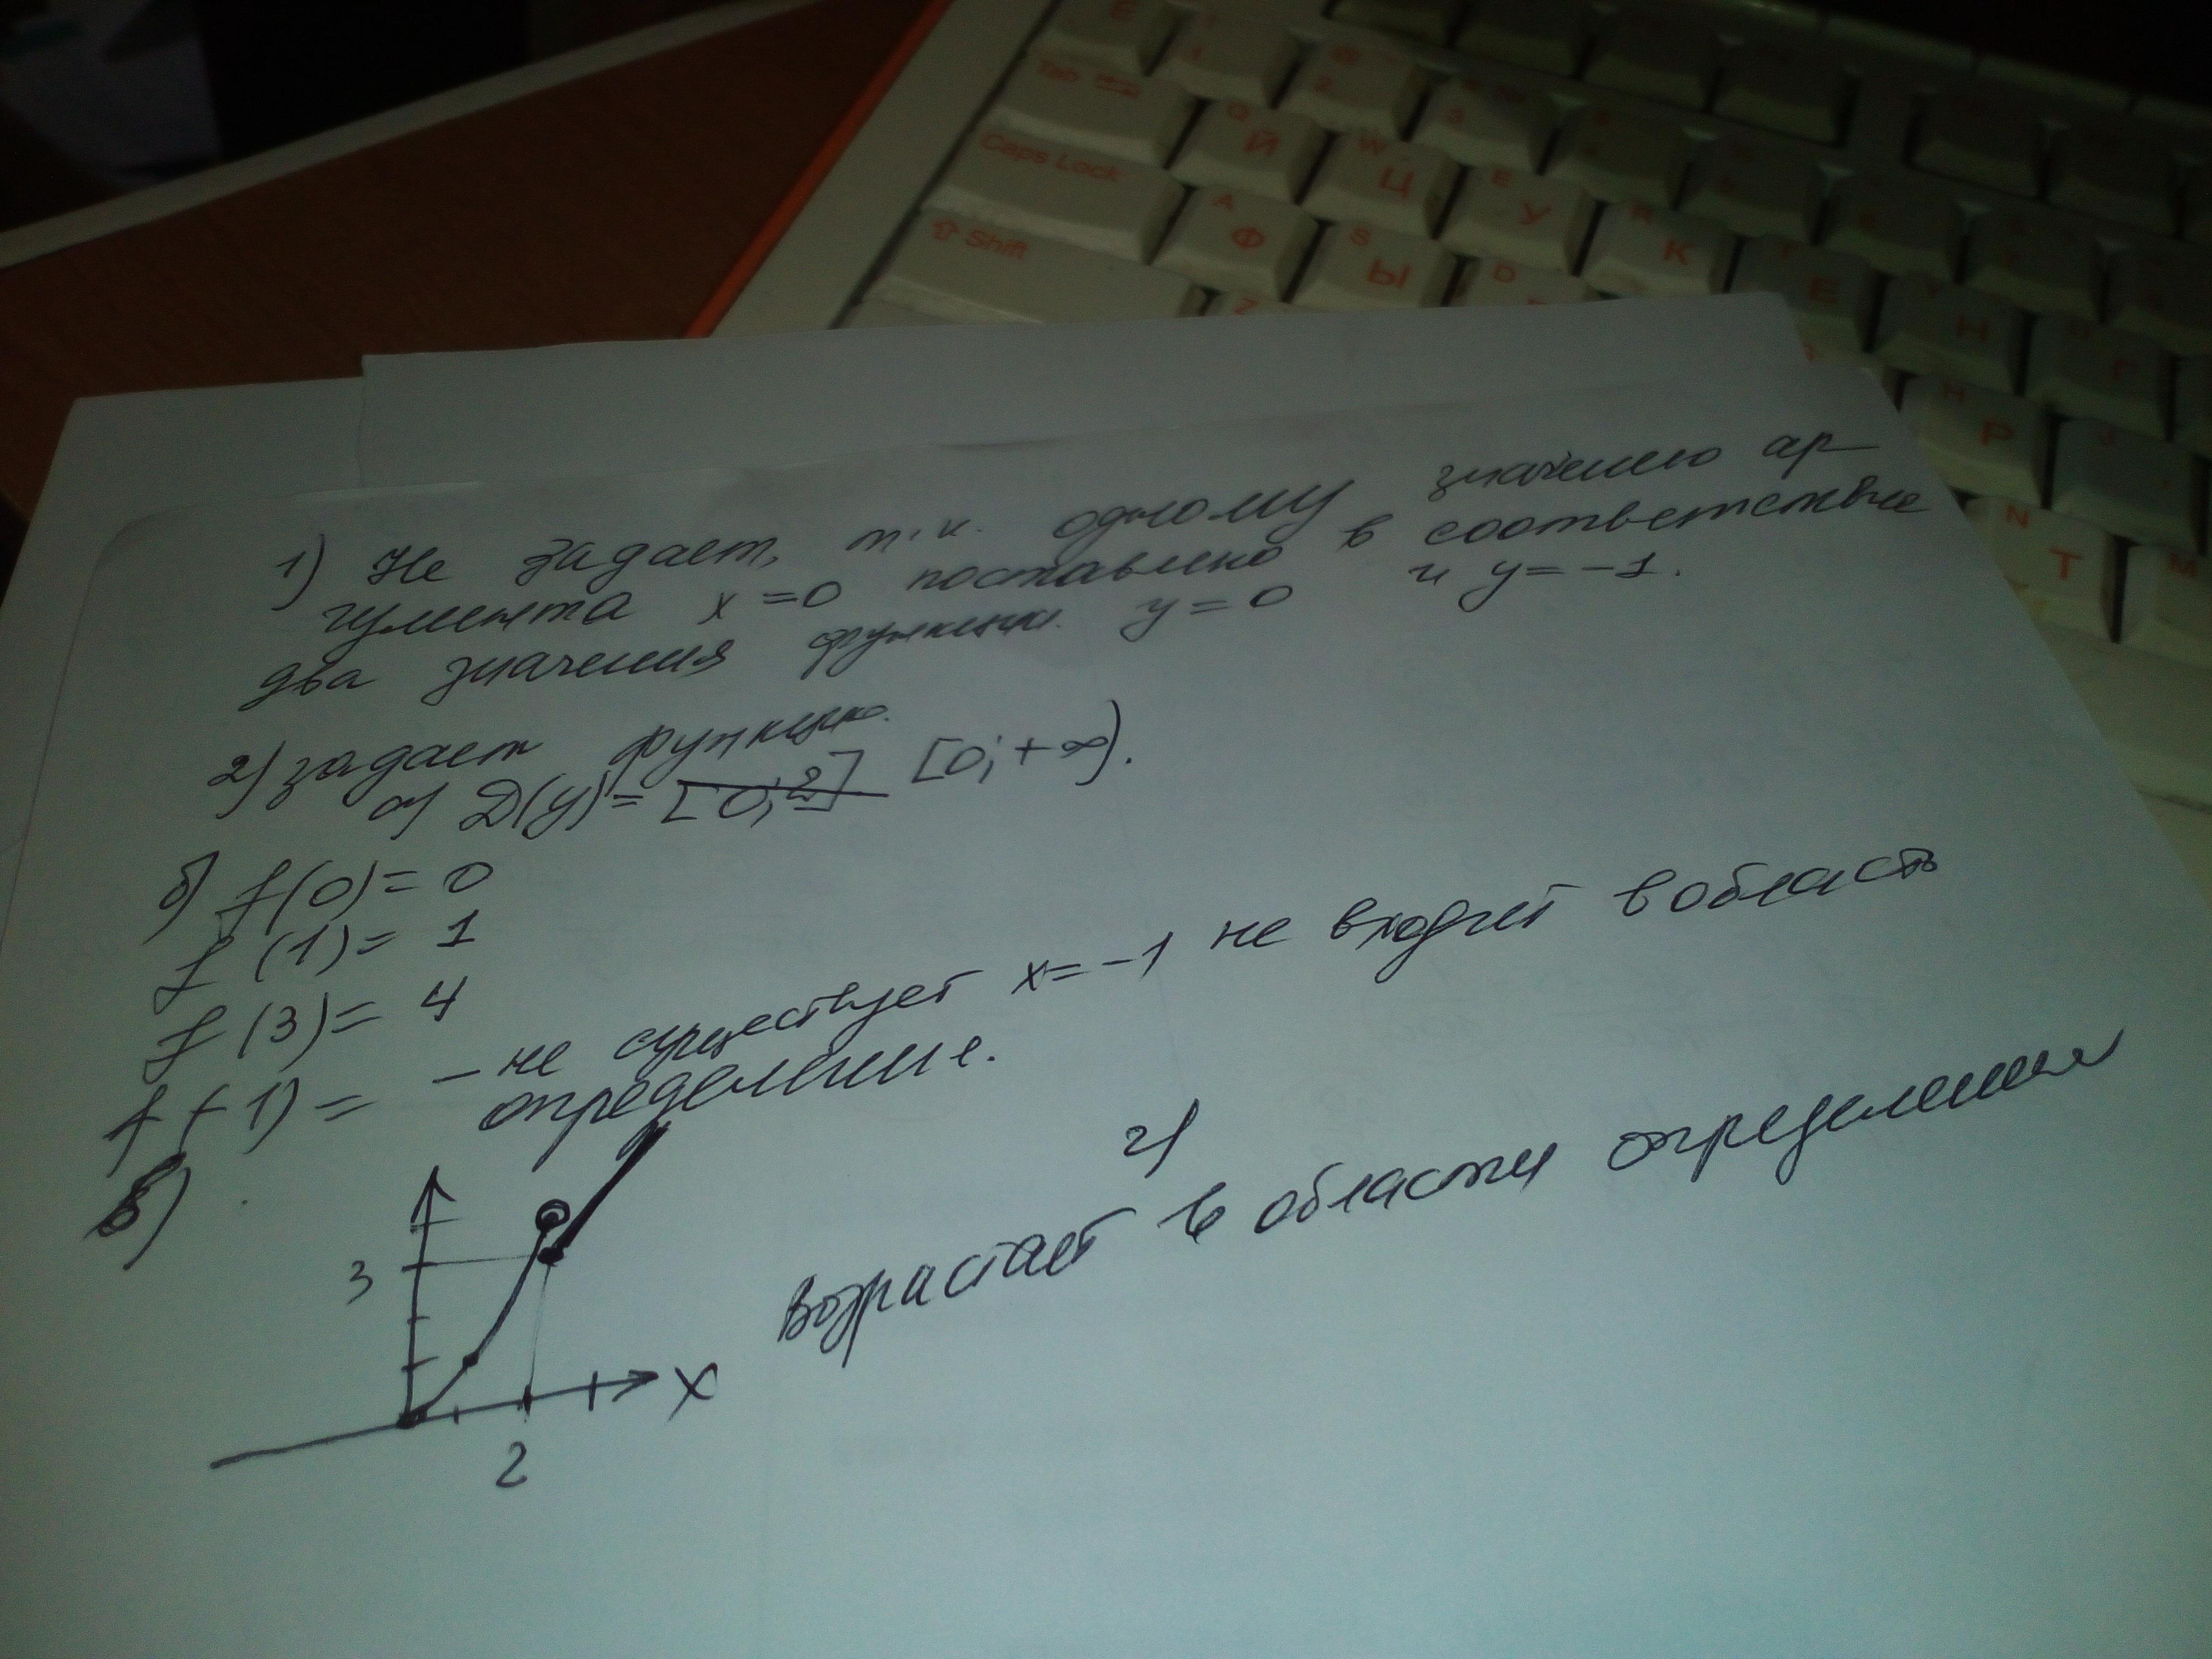 E
1
2
3
Tab
Q Й
W Ц
E У
R К
Е
Н
Г
Caps Lock
A Ф
S Ы
D
Р
Shift
Z
N Т
M
1) Не задает, т.к. одному значению ар-
гумента x=0 поставлено в соответствие
два значения функции y=0 и y=-1.
2) задает функцию.
а) D(y)= [0;2] [0;+∞).
б) f(0)= 0
f(1)= 1
f(3)= 4
f(-1)= – не существует x=-1 не входит в область
определение.
в)
г)
возрастает в области определения
3
X
2